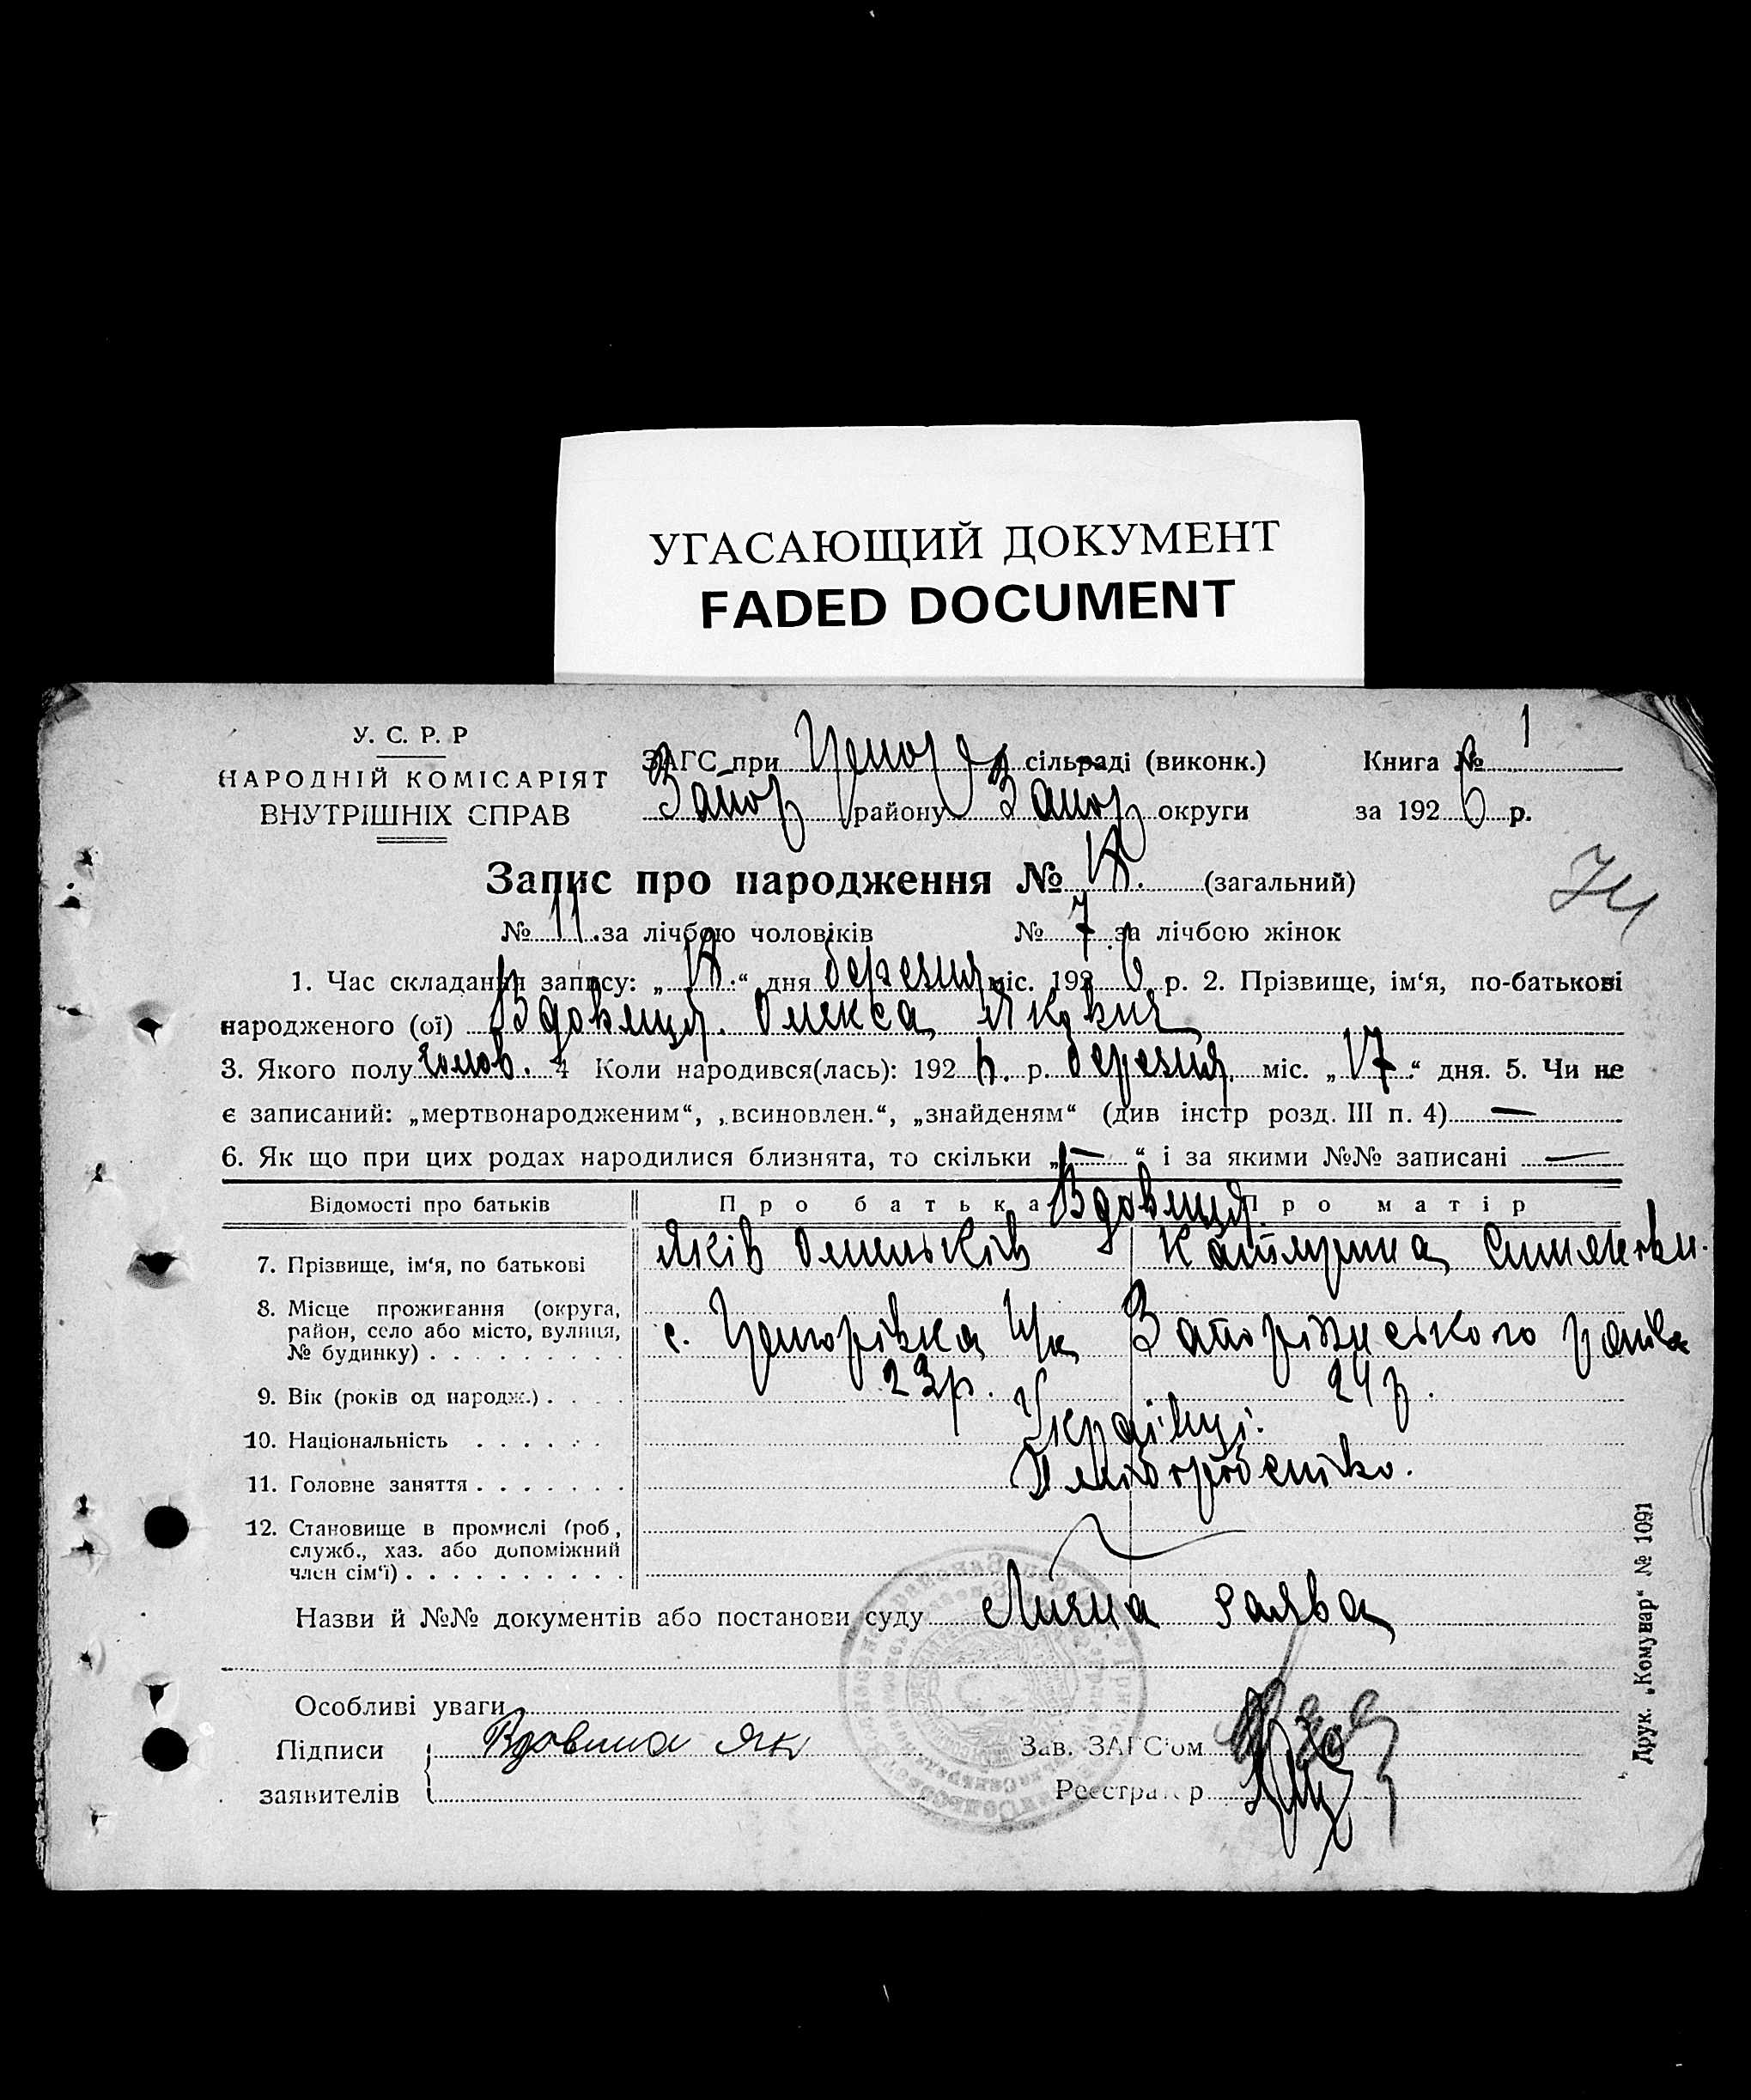 УГАСАЮЩИЙ ДОКУМЕНТ
FADED DOCUMENT
У. С. Р. Р
НАРОДНІЙ КОМІСАРІЯТ
ВНУТРІШНІХ СПРАВ
ЗАГС при сільраді (виконк.)
Запор району Запор округи
Книга № 1
за 1926 р.
Запис про народження № (загальний)
74
№ 11 за лічбою чоловіків № 7 за лічбою жінок
1. Час складання запису: „ “ дня березня міс. 1926 р. 2. Прізвище, ім‘я, по-батькові
народженого (ої) Вдовиця Олекса Якович
3. Якого полу чолов. 4 Коли народився(лась): 1926. р. березня міс. „17“ дня. 5. Чи не
є записаний: „мертвонародженим“, „всиновлен.“, „знайденям“ (див інстр розд. III п. 4) —
6. Як що при цих родах народилися близнята, то скільки „—“ і за якими №№ записані —
Відомості про батьків Про батька Вдовиця Про матір
7. Прізвище, ім‘я, по батькові Яків Омельків Катерина
8. Місце проживання (округа,
район, село або місто, вулиця,
№ будинку) . . . . . . . . . с. Запорізського
9. Вік (років од народж.) . . . . 23р. 24р.
10. Національність . . . . . . Українці.
11. Головне заняття . . . . . . . Хліборобство.
12. Становище в промислі (роб,
служб., хаз. або допоміжний
член сім‘ї) . . . . . . . . . .
Назви й №№ документів або постанови суду Лична заява
Особливі уваги
Підписи Вдовица Як
заявителів
Зав. ЗАГС‘ом
Реєстратор
Друк. „Комунар“ № 1091